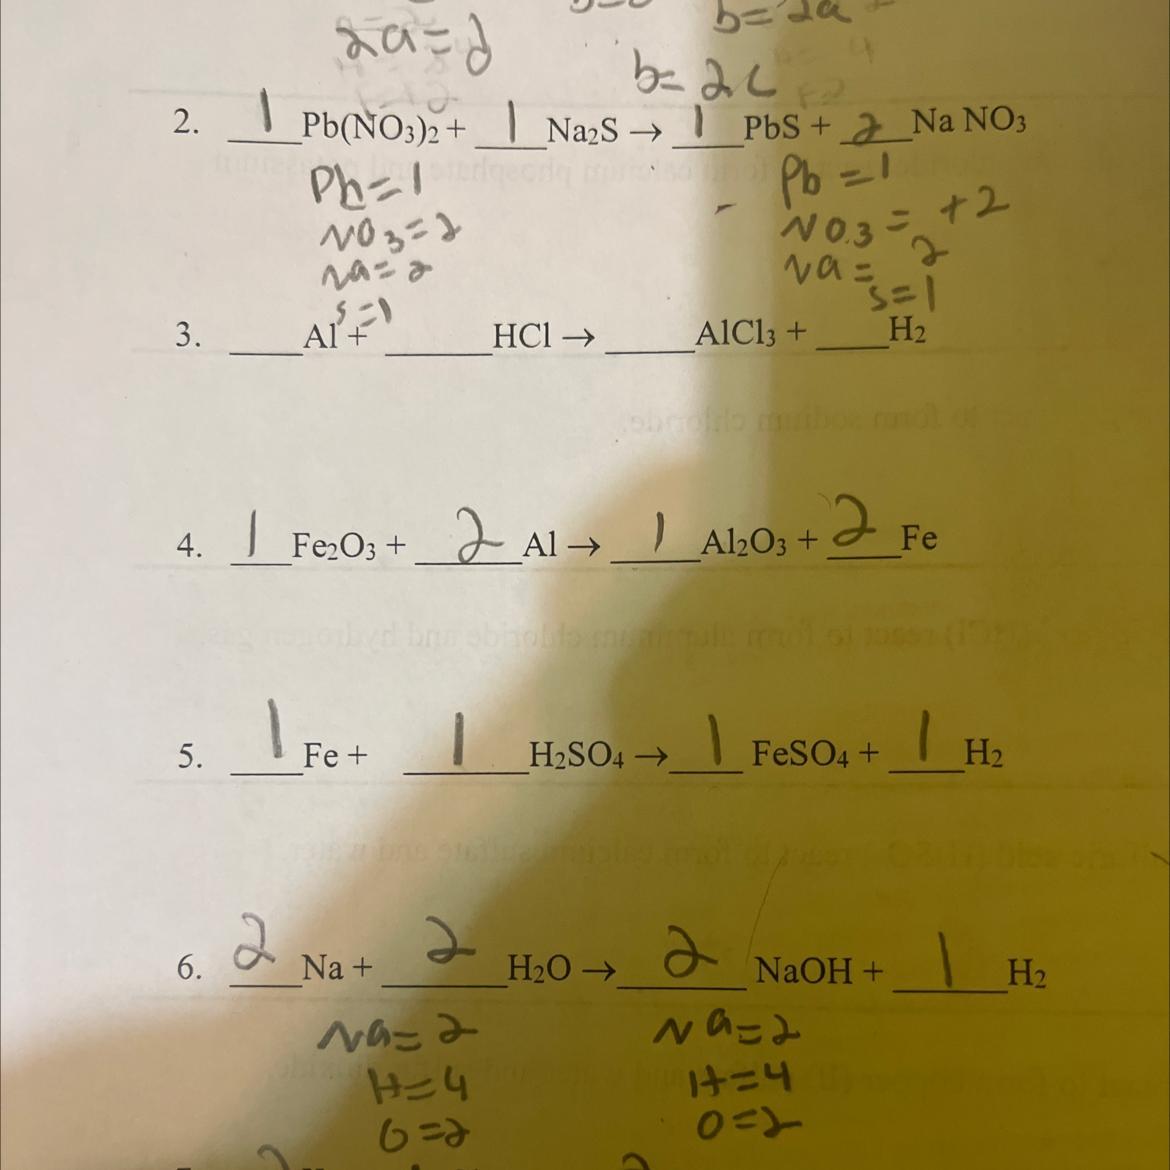 2a=d
b=2a
b=2c
2. 1 Pb(NO3)2 + 1 Na2S → 1 PbS + 2 Na NO3
Pb=1 Pb=1
NO3=2 NO3= +2
Na=2 Na= 2
s=1 s=1
3. ___Al + ___HCl → ___AlCl3 + ___H2
4. 1 Fe2O3 + 2 Al → 1 Al2O3 + 2 Fe
5. 1 Fe + 1 H2SO4 → 1 FeSO4 + 1 H2
6. 2 Na + 2 H2O → 2 NaOH + 1 H2
Na=2 Na=2
H=4 H=4
O=2 O=2